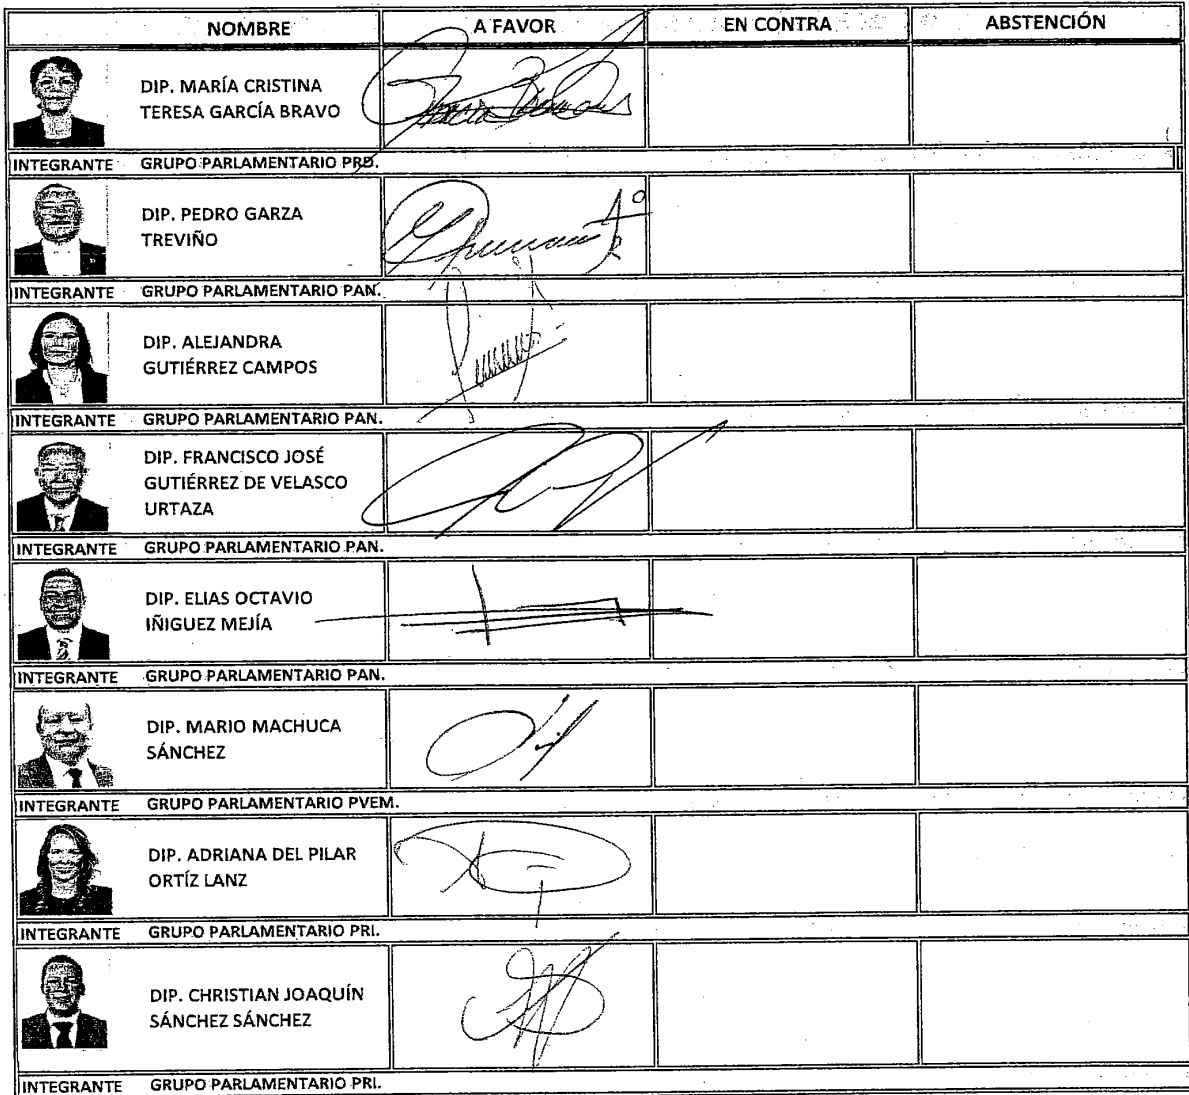 NOMBRE A FAVOR EN CONTRA ABSTENCIÓN
DIP. MARÍA CRISTINA
TERESA GARCÍA BRAVO
INTEGRANTE GRUPO PARLAMENTARIO PRD.
DIP. PEDRO GARZA
TREVIÑO
INTEGRANTE GRUPO PARLAMENTARIO PAN.
DIP. ALEJANDRA
GUTIÉRREZ CAMPOS
INTEGRANTE GRUPO PARLAMENTARIO PAN.
DIP. FRANCISCO JOSÉ
GUTIÉRREZ DE VELASCO
URTAZA
INTEGRANTE GRUPO PARLAMENTARIO PAN.
DIP. ELIAS OCTAVIO
IÑIGUEZ MEJÍA
INTEGRANTE GRUPO PARLAMENTARIO PAN.
DIP. MARIO MACHUCA
SÁNCHEZ
INTEGRANTE GRUPO PARLAMENTARIO PVEM.
DIP. ADRIANA DEL PILAR
ORTÍZ LANZ
INTEGRANTE GRUPO PARLAMENTARIO PRI.
DIP. CHRISTIAN JOAQUÍN
SÁNCHEZ SÁNCHEZ
INTEGRANTE GRUPO PARLAMENTARIO PRI.